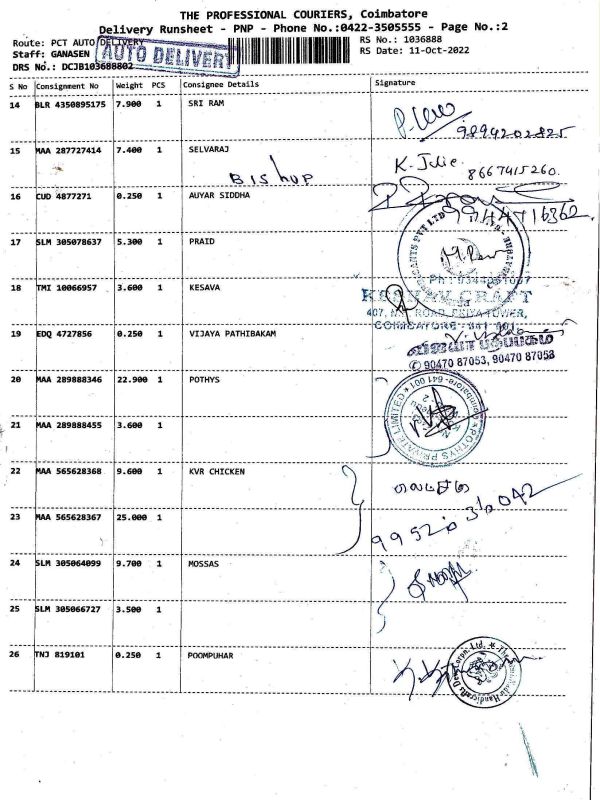 THE PROFESSIONAL COURIERS, Coimbatore
Delivery Runsheet - PNP - Phone No.:0422-3505555 - Page No.:2
Route: PCT AUTO DELIVERY
RS No.: 1036888
Staff: GANASEN
AUTO DELIVERY
RS Date: 11-Oct-2022
DRS No.: DCJB103688802
S No Consignment No Weight PCS Consignee Details Signature
14 BLR 4350895175 7.900 1 SRI RAM
9894202825
15 MAA 287727414 7.400 1 SELVARAJ
K. Julie
8667415260.
BISHUP
16 CUD 4877271 0.250 1 AUYAR SIDDHA
9944716362
17 SLM 305078637 5.300 1 PRAID
18 TMI 10066957 3.600 1 KESAVA
KESHAV CRAFT
COIMBATORE - 641 001
19 EDQ 4727856 0.250 1 VIJAYA PATHIBAKAM
விஜயா பதிப்பகம்
✆ 90470 87053, 90470 87058
20 MAA 289888346 22.900 1 POTHYS
POTHYS PRIVATE LIMITED * Coimbatore - 641 001 *
21 MAA 289888455 3.600 1
22 MAA 565628368 9.600 1 KVR CHICKEN
23 MAA 565628367 25.000 1
24 SLM 305064099 9.700 1 MOSSAS
25 SLM 305066727 3.500 1
26 TNJ 819101 0.250 1 POOMPUHAR